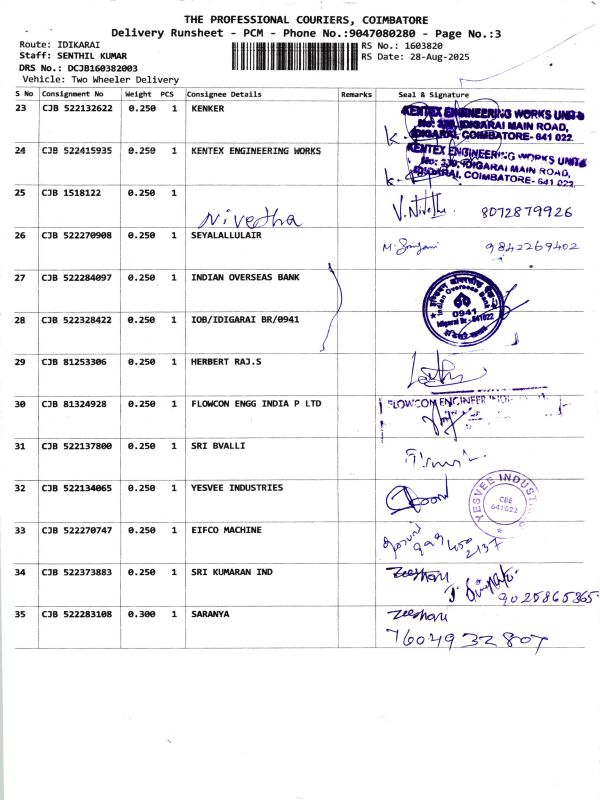 THE PROFESSIONAL COURIERS, COIMBATORE
Delivery Runsheet - PCM - Phone No.:9047080280 - Page No.:3
Route: IDIKARAI
RS No.: 1603820
Staff: SENTHIL KUMAR
RS Date: 28-Aug-2025
DRS No.: DCJB160382003
Vehicle: Two Wheeler Delivery
S No Consignment No Weight PCS Consignee Details Remarks Seal & Signature
23 CJB 522132622 0.250 1 KENKER
KENTEX ENGINEERING WORKS UNIT
IDIGARAI MAIN ROAD,
IDIGARAI, COIMBATORE- 641 022.
24 CJB 522415935 0.250 1 KENTEX ENGINEERING WORKS
KENTEX ENGINEERING WORKS UNIT
IDIGARAI MAIN ROAD,
IDIGARAI, COIMBATORE- 641 022.
25 CJB 1518122 0.250 1
Nivedha
V. Nivedha 8072879926
26 CJB 522270908 0.250 1 SEYALALLULAIR
9842269402
27 CJB 522284097 0.250 1 INDIAN OVERSEAS BANK
Indian Overseas Bank
0941
Idigarai Br - 641022
28 CJB 522328422 0.250 1 IOB/IDIGARAI BR/0941
29 CJB 81253306 0.250 1 HERBERT RAJ.S
30 CJB 81324928 0.250 1 FLOWCON ENGG INDIA P LTD
FLOWCON ENGINEER
31 CJB 522137800 0.250 1 SRI BVALLI
32 CJB 522134065 0.250 1 YESVEE INDUSTRIES
YESVEE INDUST
CBE
641022
33 CJB 522270747 0.250 1 EIFCO MACHINE
34 CJB 522373883 0.250 1 SRI KUMARAN IND
9025865365
35 CJB 522283108 0.300 1 SARANYA
7604932807